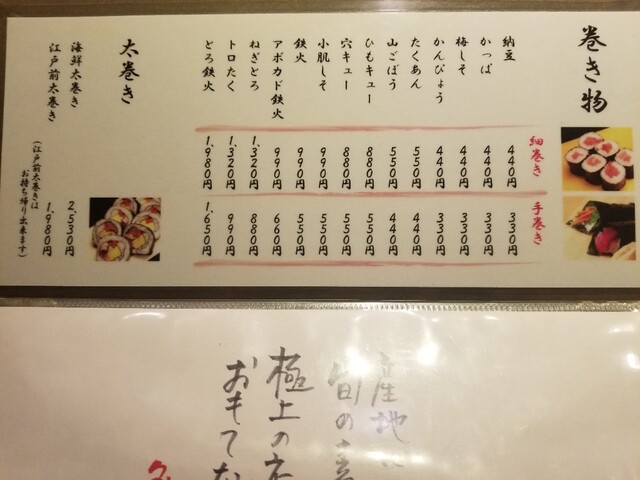 巻き物
細巻き 手巻き
納豆 440円 330円
かっぱ 440円 330円
梅しそ 440円 330円
かんぴょう 440円 330円
たくあん 550円 440円
山ごぼう 550円 440円
ひもキュー 880円 550円
穴キュー 880円 550円
小肌しそ 990円 550円
鉄火 990円 550円
アボカド鉄火 990円 660円
ねぎとろ 1,320円 880円
トロたく 1,320円 990円
とろ鉄火 1,980円 1,650円
太巻き
海鮮太巻き 2,530円
江戸前太巻き 1,980円
(江戸前太巻きは
お持ち帰り出来ます)
産地
旬の
極上の
おもてな